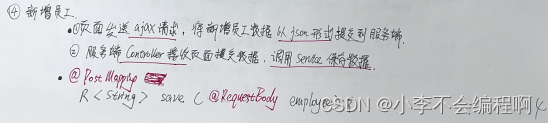 ④ 新增员工.
• ①页面发送 ajax 请求，将新增员工数据以 json 形式提交到服务端.
② 服务端 Controller 接收页面提交数据，调用 service 保存数据.
• @PostMapping
R<String> save ( @RequestBody employee
CSDN @小李不会编程啊